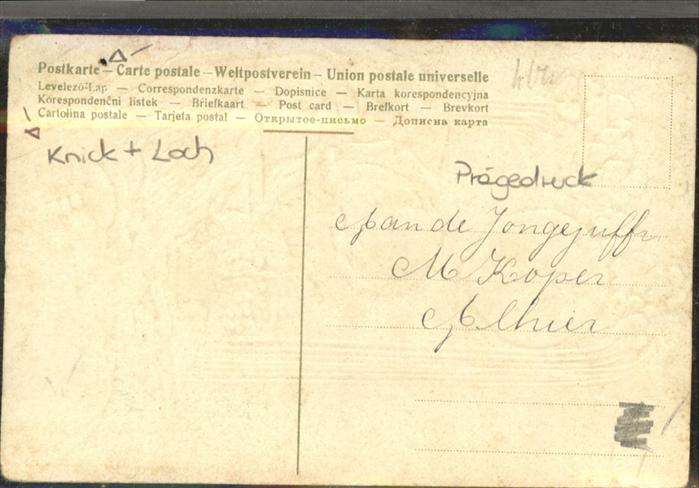 Postkarte — Carte postale — Weltpostverein — Union postale universelle
Levelező-Lap — Correspondenzkarte — Dopisnice — Karta korespondencyjna
Korespondenční lístek — Briefkaart — Post card — Brefkort — Brevkort
Cartolina postale — Tarjeta postal — Открытое-письмо — Дописна карта
Knick + Loch
Prägedruck
Aan de Jongejuffr
M Koper
Alhier